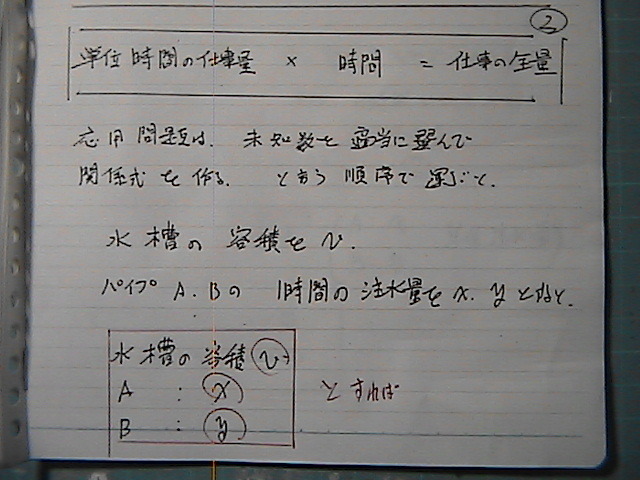 ②
単位時間の仕事量 × 時間 = 仕事の全量
応用問題は、未知数を適当に選んで
関係式を作る。と言う順序で運ぶと、
水槽の容積をv.
パイプA.Bの1時間の注水量をx.yとすると、
水槽の容積 v
A : x とすれば
B : y